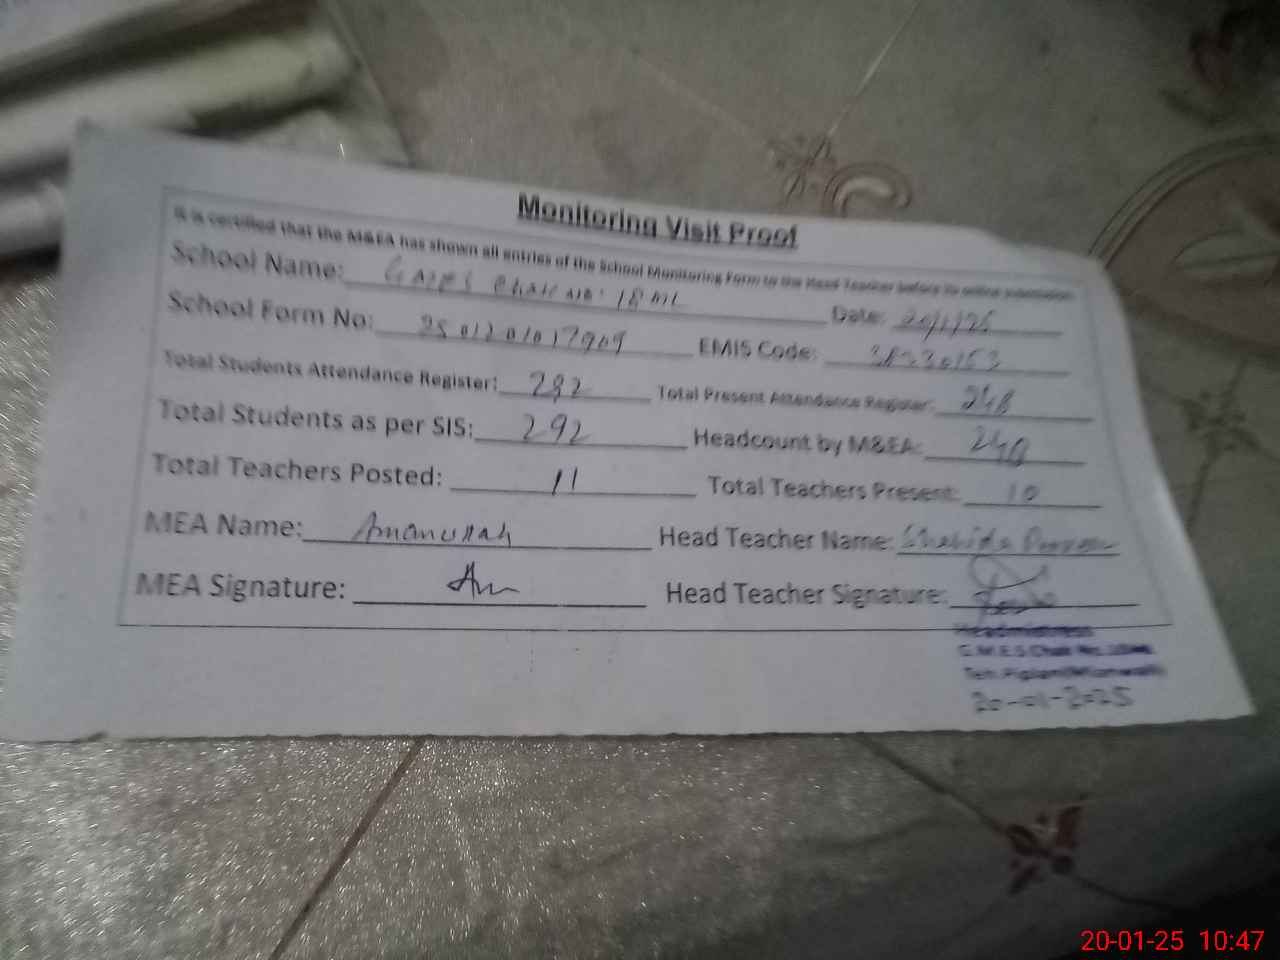 Monitoring Visit Proof
It is certified that the M&EA has shown all entries of the School Monitoring Form to the Head Teacher before its online submission
School Name: GMES Chak No. 18 ML Date: 20/1/25
School Form No: 2501201017909 EMIS Code:
Total Students Attendance Register: 292 Total Present Attendance Register: 248
Total Students as per SIS: 292 Headcount by M&EA:
Total Teachers Posted: 11 Total Teachers Present: 10
MEA Name: Amanullah Head Teacher Name:
MEA Signature: Head Teacher Signature:
Headmistress
G.M.E.S Chak No.
Teh. Piplan (Mianwali)
20-01-2025
20-01-25 10:47